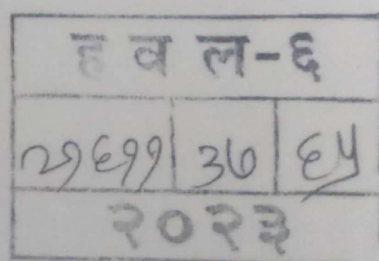 हवल-६
२१६११ ३७ ६५
२०२३